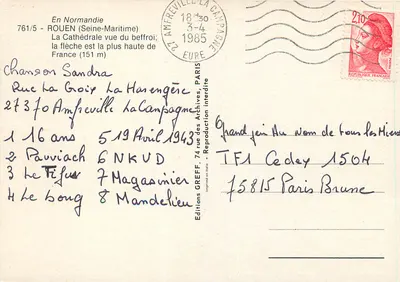 En Normandie
761/5 - ROUEN (Seine-Maritime)
La Cathédrale vue du beffroi,
la flèche est la plus haute de
France (151 m)
27 AMFREVILLE-LA CAMPAGNE
18 H 30
3-4
1985
EURE
2,10
Chanson Sandra
Rue La Croix La Harengère
27370 Amfreville La Campagne
1 16 ans 5 19 Avril 1943
2 Pauviach 6 NKVD
3 Le Tifus 7 Magasinier
4 Le boug 8 Mandelieu
Editions GREFF, 74 rue des Archives, PARIS
- Reproduction interdite -
Grand jeu Au nom de tous les Miens
TF1 Cedex 1504
75815 Paris Brune